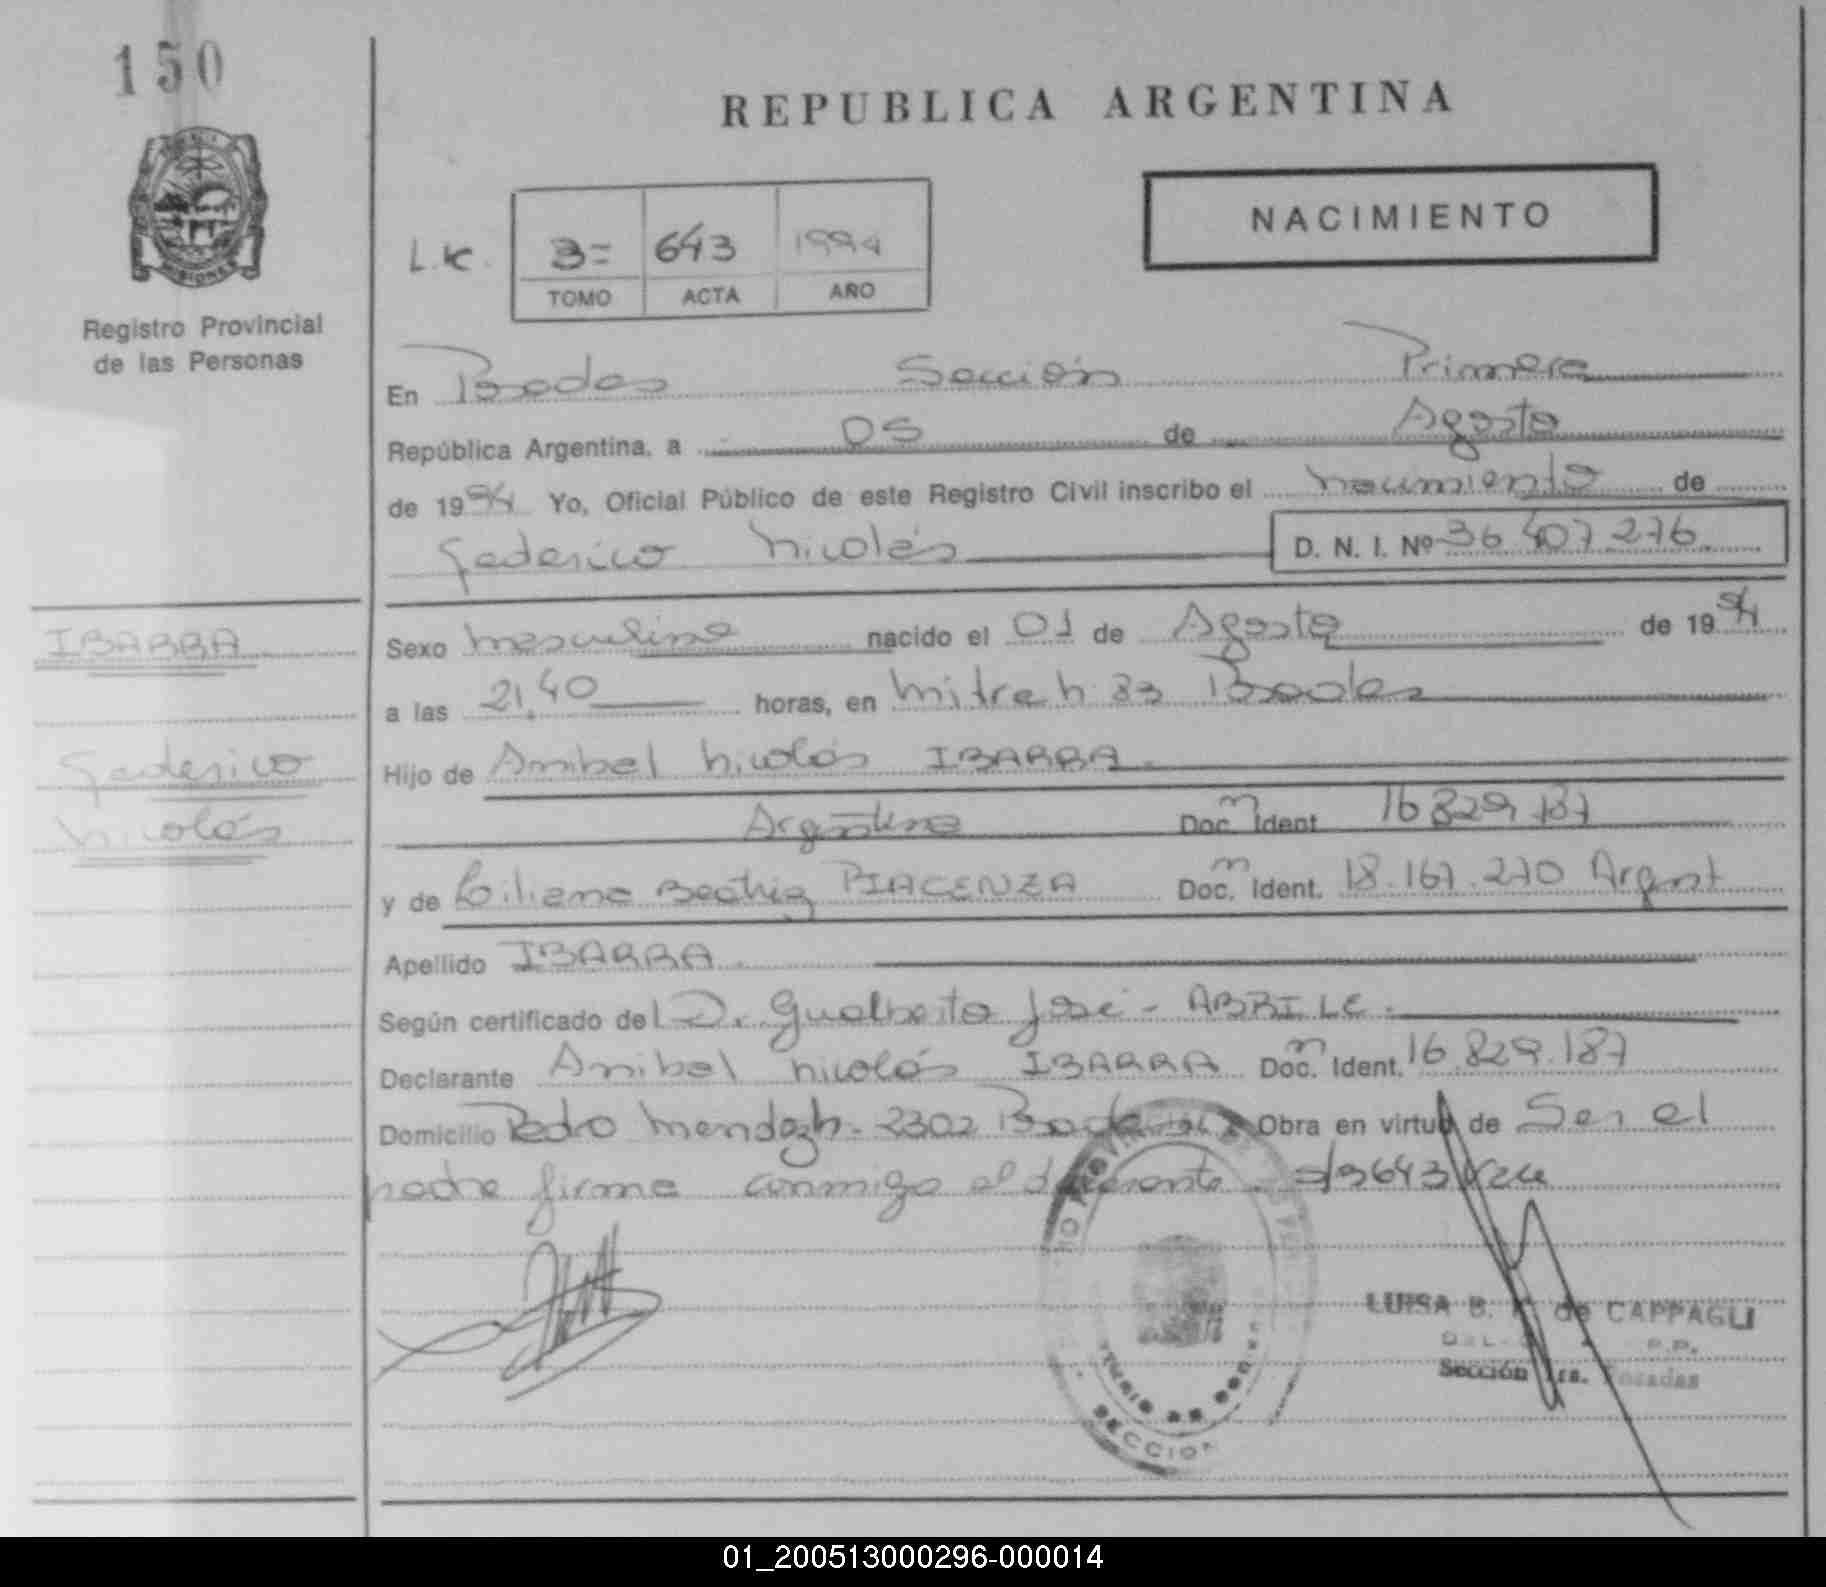 150
REPUBLICA ARGENTINA
NACIMIENTO
L.K. 3= 643 1994
TOMO ACTA AÑO
Registro Provincial
de las Personas
En Psadas Sección Primera
República Argentina, a 05 de Agosto
de 1994 Yo, Oficial Público de este Registro Civil inscribo el nacimiento de
Federico Nicolás D. N. I. Nº 36 407 276
IBARRA
Sexo masculino nacido el 01 de Agosto de 1994
a las 21,40 horas, en Mitre n 83 Psadas
Federico
Hijo de Anibal Nicolás IBARRA
Nicolás
Argentino Doc. n Ident. 16 829 187
y de Liliana Beatriz PIACENZA Doc. n Ident. 18.167.270 Argent
Apellido IBARRA
Según certificado del D. Gualberto José - ABRILE.
Declarante Anibal Nicolás IBARRA Doc. n Ident. 16 829.187
Domicilio Pedro Mendoza n. 2302 Obra en virtud de Ser el
padre firma conmigo el s/s643
LUISA B. de CAPPAGLI
Sección 1ra. Posadas
SECCION
01_200513000296-000014